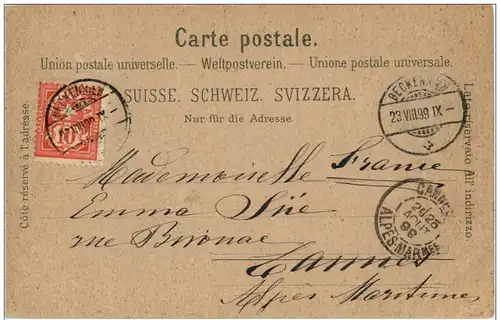 Carte postale.
Union postale universelle. — Weltpostverein. — Unione postale universale.
SUISSE. SCHWEIZ. SVIZZERA.
Nur für die Adresse.
Côte réservé à l'adresse.
Lato riservato All' indirizzo.
10
BECKENRIED
23.VIII.99.IX
Mademoiselle France
Emma Süe
rue Bivonac
Cannes
Alpes Maritimes
CANNES
AOUT
99
ALPES-MARMES